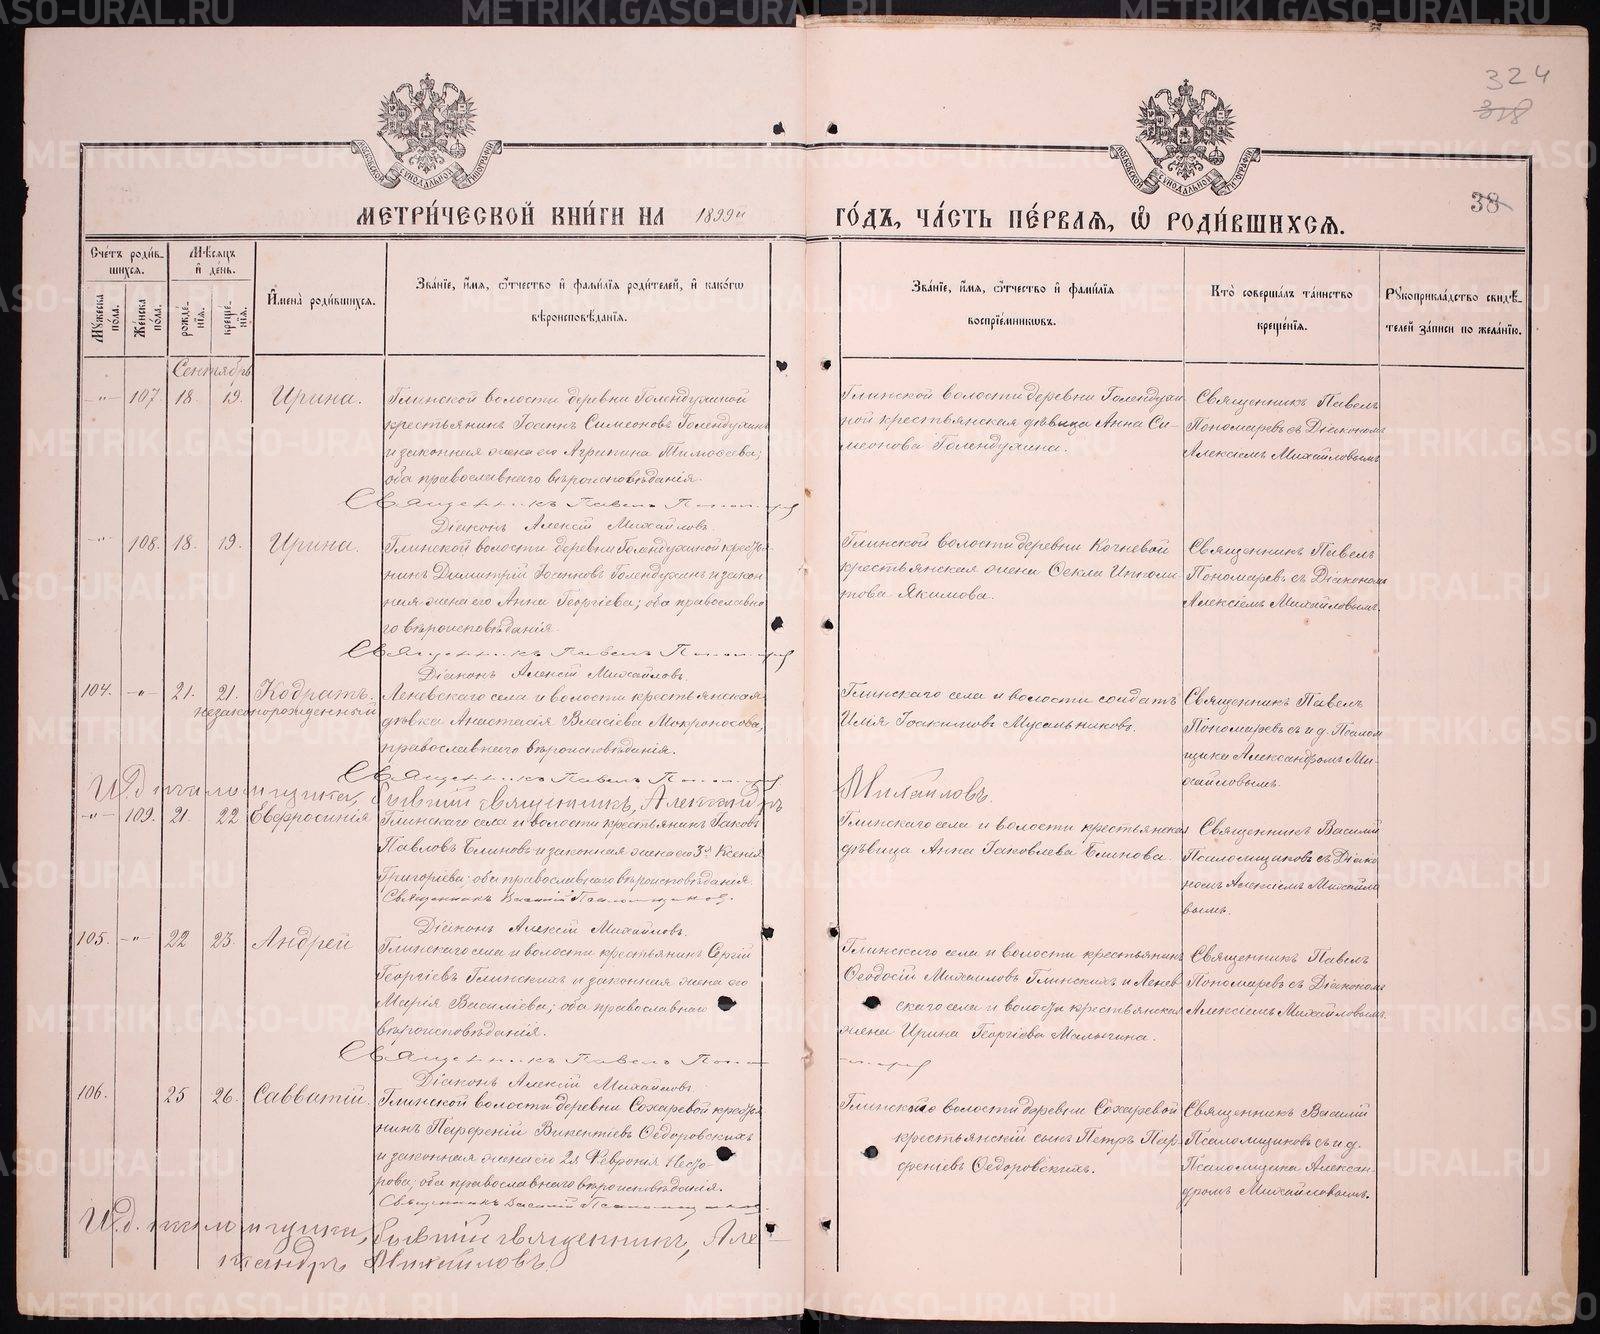 324
318
38
МЕТРИ́ЧЕСКОЙ КНИ́ГИ НА 1899й ГО́ДЪ, ЧА́СТЬ ПЕ́РВАЯ, Ѡ РОДИ́ВШИХСЯ.
Сче́тъ роди́вшихся.
Му́жеска по́ла.
Же́нска по́ла.
Мѣ́сяцъ и҆ де́нь.
рожде́нїя.
креще́нїя.
И҆мена̀ роди́вшихся.
Зва́нїе, и҆́мя, ѻ҆́тчество и҆ фами́лїя роди́телей, и҆ како́гѡ
вѣроисповѣ́данїя.
Зва́нїе, и҆́мя, ѻ҆́тчество и҆ фами́лїя
воспрїе́мникѡвъ.
Кто̀ соверша́лъ та́инство
креще́нїя.
Рꙋкоприкла́дство свидѣ́-
телей за́писи по жела́нїю.
Сентябрь
-"- 107. 18. 19. Ирина.
Глинской волости деревни Голендухиной
крестьянинъ Іоаннъ Симеоновъ Голендухинъ
и законная жена его Агрипина Тимоѳеева;
оба православнаго вѣроисповѣданія.
Священникъ Павелъ Пономарев
Діаконъ Алексій Михайловъ.
Глинской волости деревни Голендухи
ной крестьянская дѣвица Анна Си-
меонова Голендухина.
Священникъ Павелъ
Пономаревъ съ Діакономъ
Алексіемъ Михайловымъ
-"- 108. 18. 19. Ирина.
Глинской волости деревни Голендухиной крестья-
нинъ Димитрій Іоанновъ Голендухинъ и закон
ная жена его Анна Георгіева; оба православна
го вѣроисповѣданія.
Священникъ Павелъ Пономарев
Діаконъ Алексій Михайловъ.
Глинской волости деревни Кочневой
крестьянская жена Ѳекла Ипполи-
това Якимова.
Священникъ Павелъ
Пономаревъ съ Діакономъ
Алексіемъ Михайловымъ
104. -"- 21. 21. Кодратъ.
незаконорожденный
Леневскаго села и волости крестьянская
дѣвка Анастасія Власіева Мокроносова,
православнаго вѣроисповѣданія.
Священникъ Павелъ Пономарев
И.д. псаломщика, бывшій священникъ, Александръ Михайловъ.
Глинскаго села и волости солдатъ
Илія Іоакимовъ Мусальниковъ.
Священникъ Павелъ
Пономаревъ съ и.д. Псалом
щика Александромъ Ми-
хайловымъ.
-"- 109. 21. 22 Евфросинія
Глинскаго села и волости крестьянинъ Іаковъ
Павловъ Блиновъ и законная жена его 3я Ксенія
Григоріева; оба православнаго вѣроисповѣданія.
Священникъ Василій Псаломщиковъ.
Діаконъ Алексій Михайловъ.
Глинскаго села и волости крестьянская
дѣвица Анна Іаковлева Блинова.
Священникъ Василій
Псаломщиковъ съ Діако
номъ Алексіемъ Михайло
вымъ.
105. -"- 22 23. Андрей
Глинскаго села и волости крестьянинъ Сергій
Георгіевъ Глинскихъ и законная жена его
Марія Василіева; оба православнаго
вѣроисповѣданія.
Священникъ Павелъ Пономарев
Діаконъ Алексій Михайловъ.
Глинскаго села и волости крестьянинъ
Ѳеодосій Михаиловъ Глинскихъ и Ленев
скаго села и волости крестьянская
жена Ирина Георгіева Малыгина.
Священникъ Павелъ
Пономаревъ съ Діакономъ
Алексіемъ Михайловымъ.
106. 25 26. Савватій.
Глинской волости деревни Сохаревой крестья
нинъ Парфеній Викентіевъ Ѳедоровскихъ
и законная жена его 2я Феврония Несто-
рова; оба православнаго вѣроисповѣданія.
Священникъ Василій Псаломщиков.
И.д. псаломщика, бывшій священникъ, Але
ксандръ Михайловъ.
Глинской волости деревни Сохаревой
крестьянскій сынъ Петръ Пар-
феніевъ Ѳедоровскихъ.
Священникъ Василій
Псаломщиковъ съ и.д.
Псаломщика Алексан-
дромъ Михайловымъ.